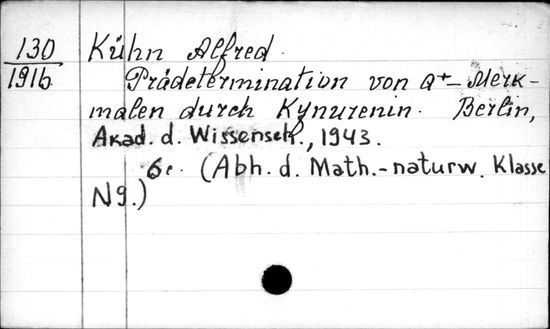 130 Kühn Alfred.
1916 Prädetermination von a+- Merk-
malen durch Kynurenin. Berlin,
Akad. d. Wissensch., 1943.
6c. (Abh. d. Math.-naturw. Klasse
N9.)